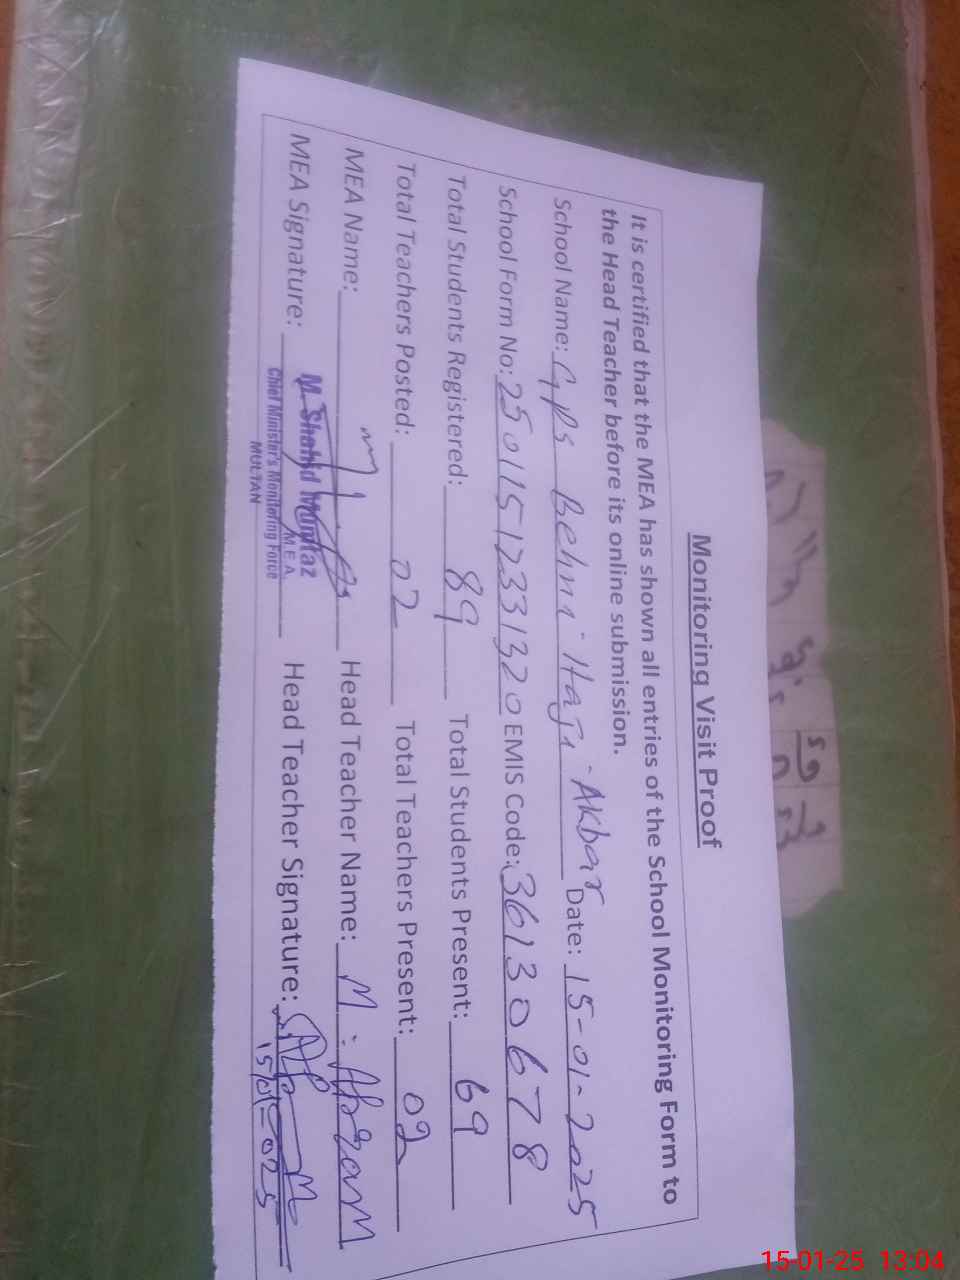 Monitoring Visit Proof
It is certified that the MEA has shown all entries of the School Monitoring Form to
the Head Teacher before its online submission.
School Name: GPS Behni Haji Akbar Date: 15-01-2025
School Form No: 25011512331320 EMIS Code: 36130678
Total Students Registered: 89 Total Students Present: 69
Total Teachers Posted: 02 Total Teachers Present: 02
MEA Name: Head Teacher Name: M: Akram
MEA Signature: Head Teacher Signature:
M. Shahid Mumtaz
M.E.A
Chief Minister's Monitoring Force
MULTAN
15-01-25 13:04